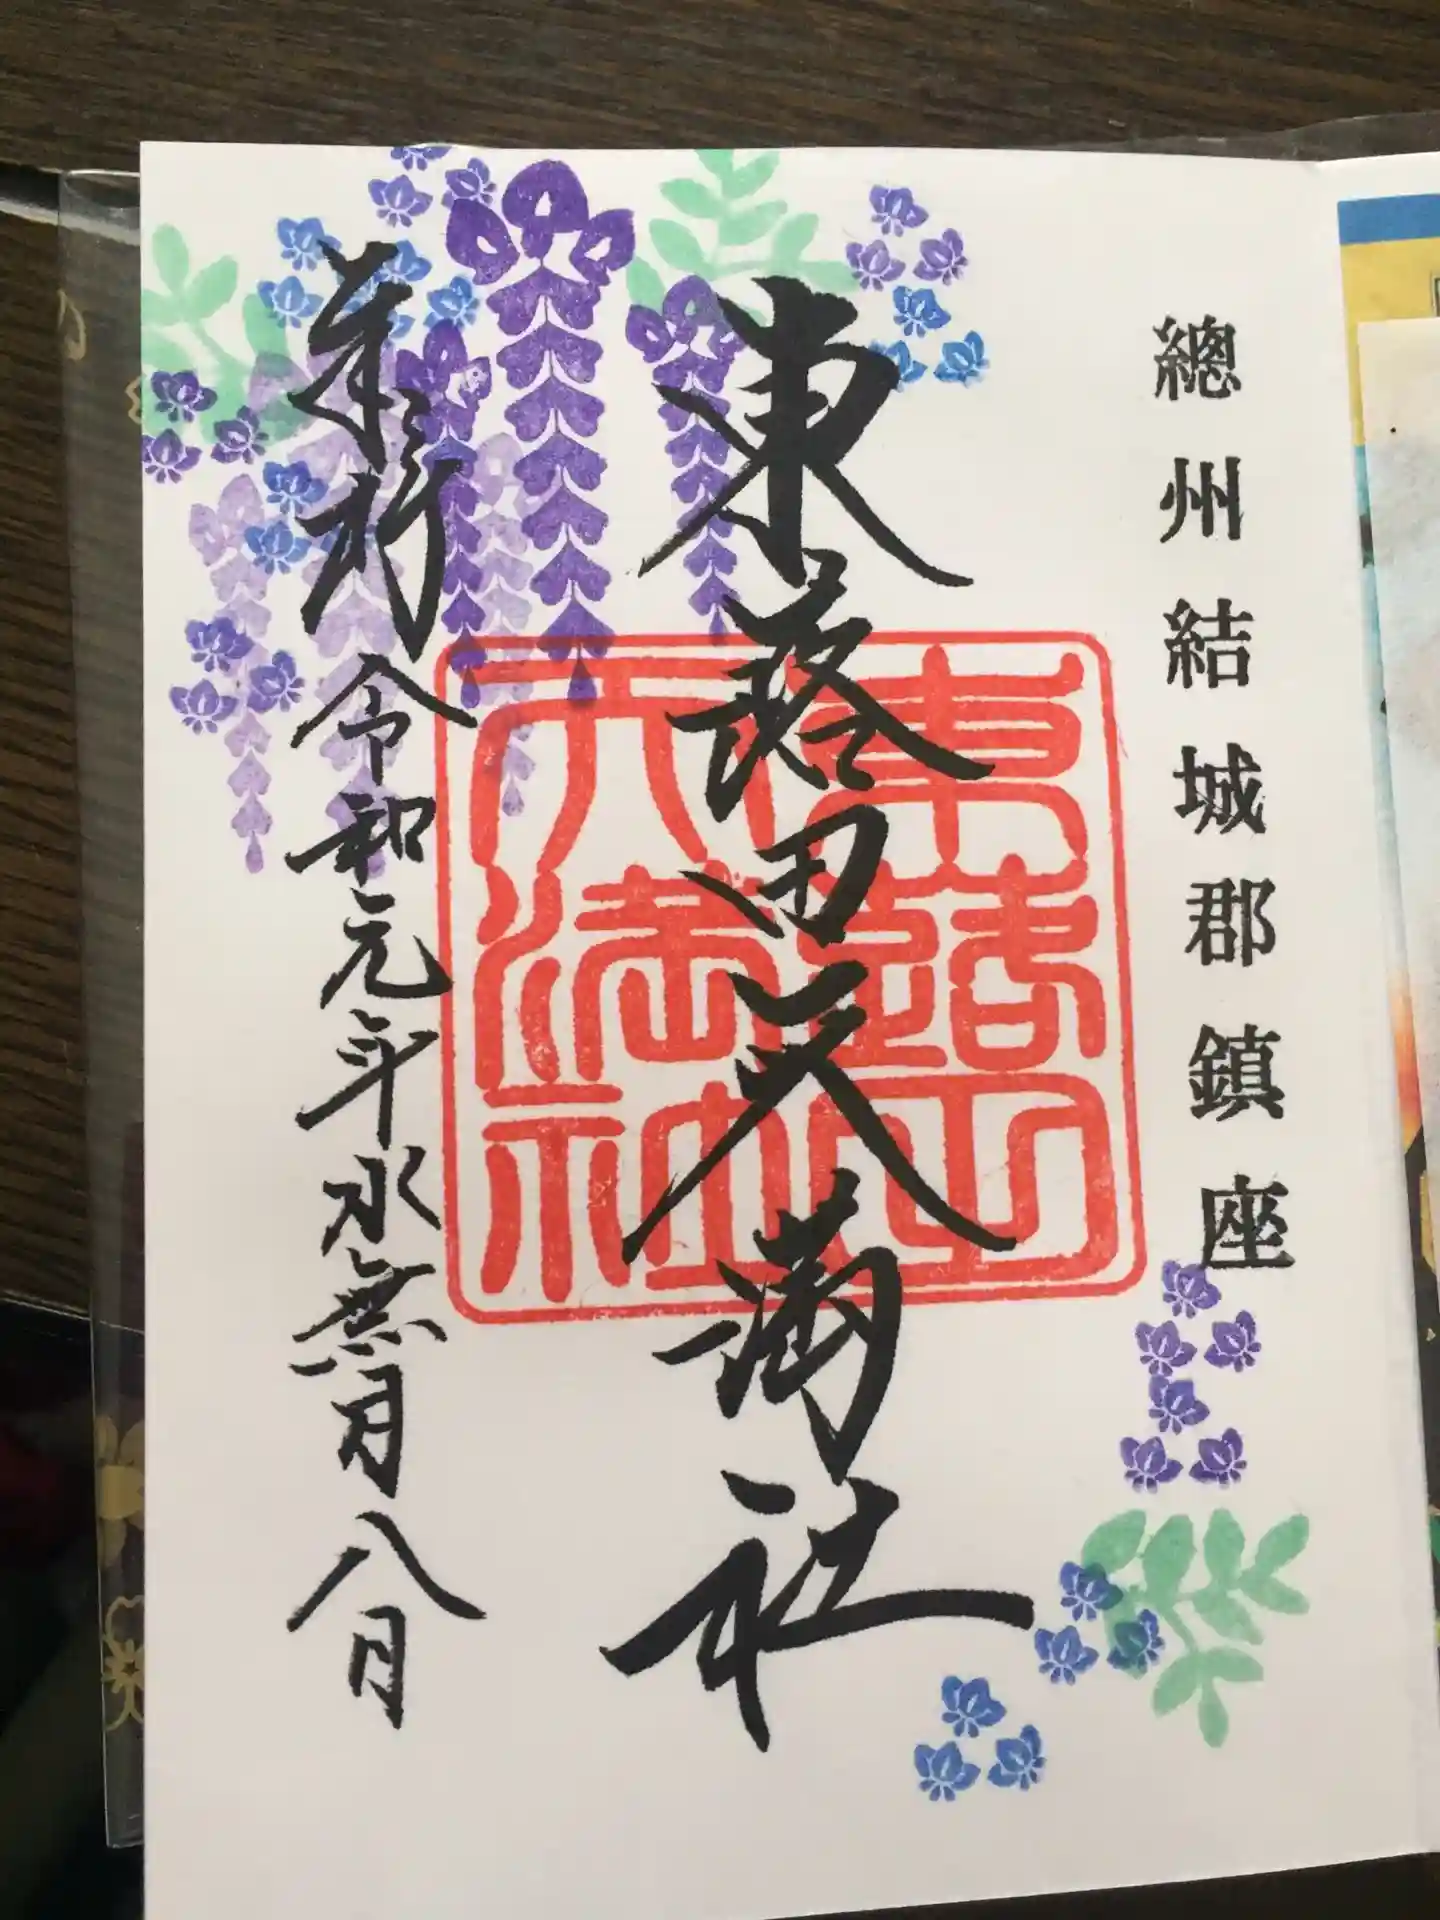 總州結城郡鎮座
東蕗田天満社
奉拝 令和元年水無月八日
東蕗田天満社